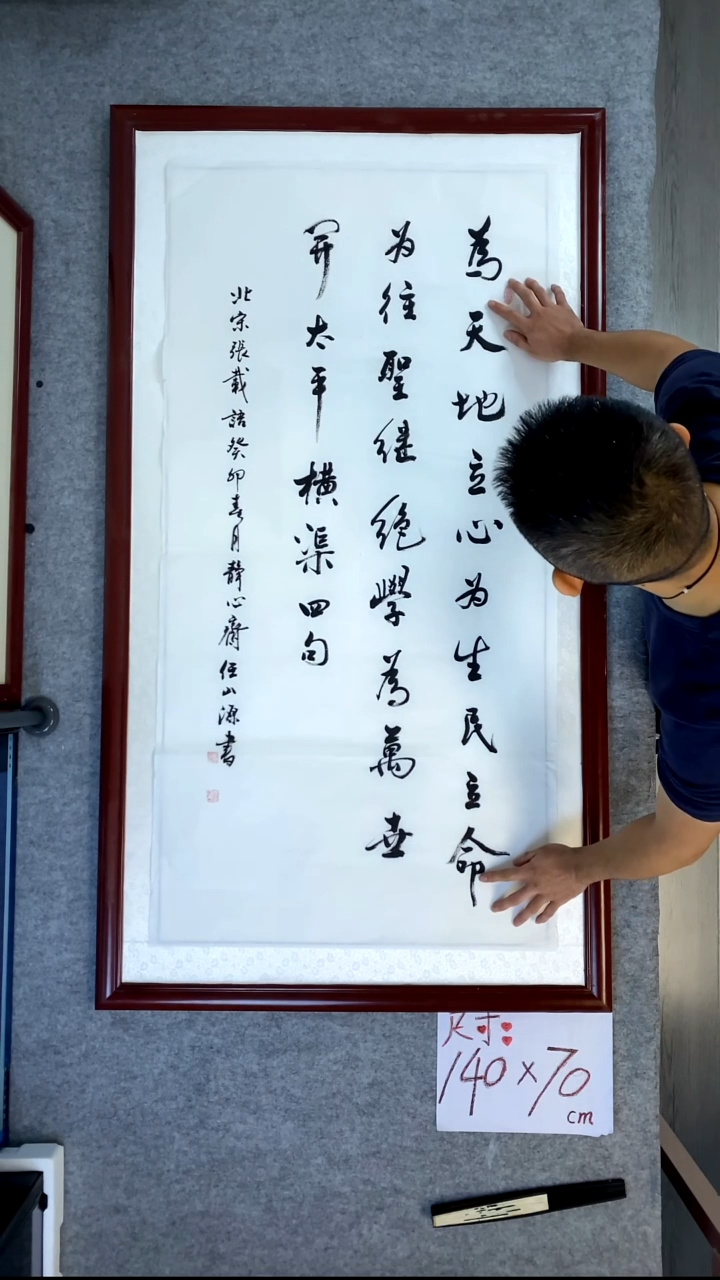 為天地立心为生民立命
为往聖继绝學為萬世
開太平橫渠四句
北宋張載語癸卯春月靜心齋任山源書
尺寸:
140×70
cm